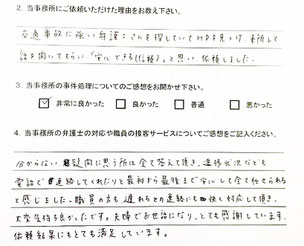 2. 当事務所にご依頼いただけた理由をお教え下さい。
交通事故に強い弁護士さんを探していてHPを見つけ、来所して
話を聞いてもらい「安心できる(信頼)」と思い、依頼しました。
3. 当事務所の事件処理についてのご感想をお聞かせ下さい。
☑ 非常に良かった □ 良かった □ 普通 □ 悪かった
4. 当事務所の弁護士の対応や職員の接客サービスについてご感想をご記入ください。
分からない疑問に思う所は全て答えて頂き、進捗状況なども
電話で連絡してくれたりと最初から最後まで安心して全て任せられる
と感じました。職員の方も遅れとの連絡にも快く対応して頂き、
大変気持ち良かったです。夫婦でお世話になり、とても感謝しています。
依頼結果にもとても満足しています。